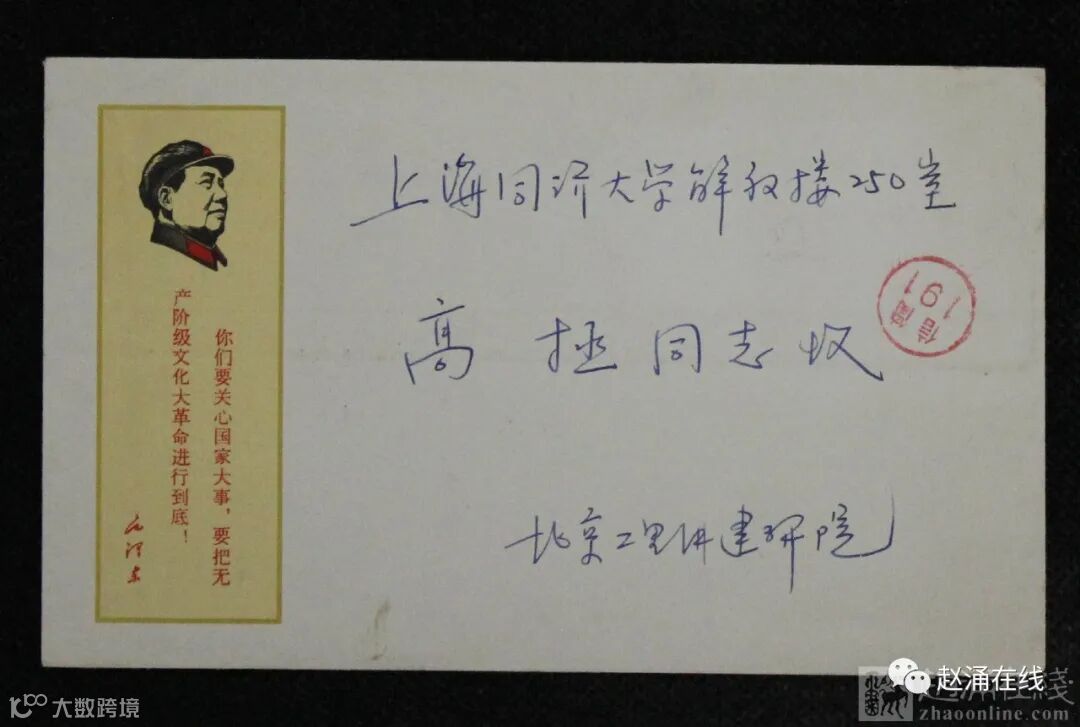 上海同济大学解放楼250室
高拯同志收
北京二里讲建研院
你们要关心国家大事，要把无
产阶级文化大革命进行到底！
毛泽东
信筒
191
大数跨境
赵涌在线
zhaoonline.com